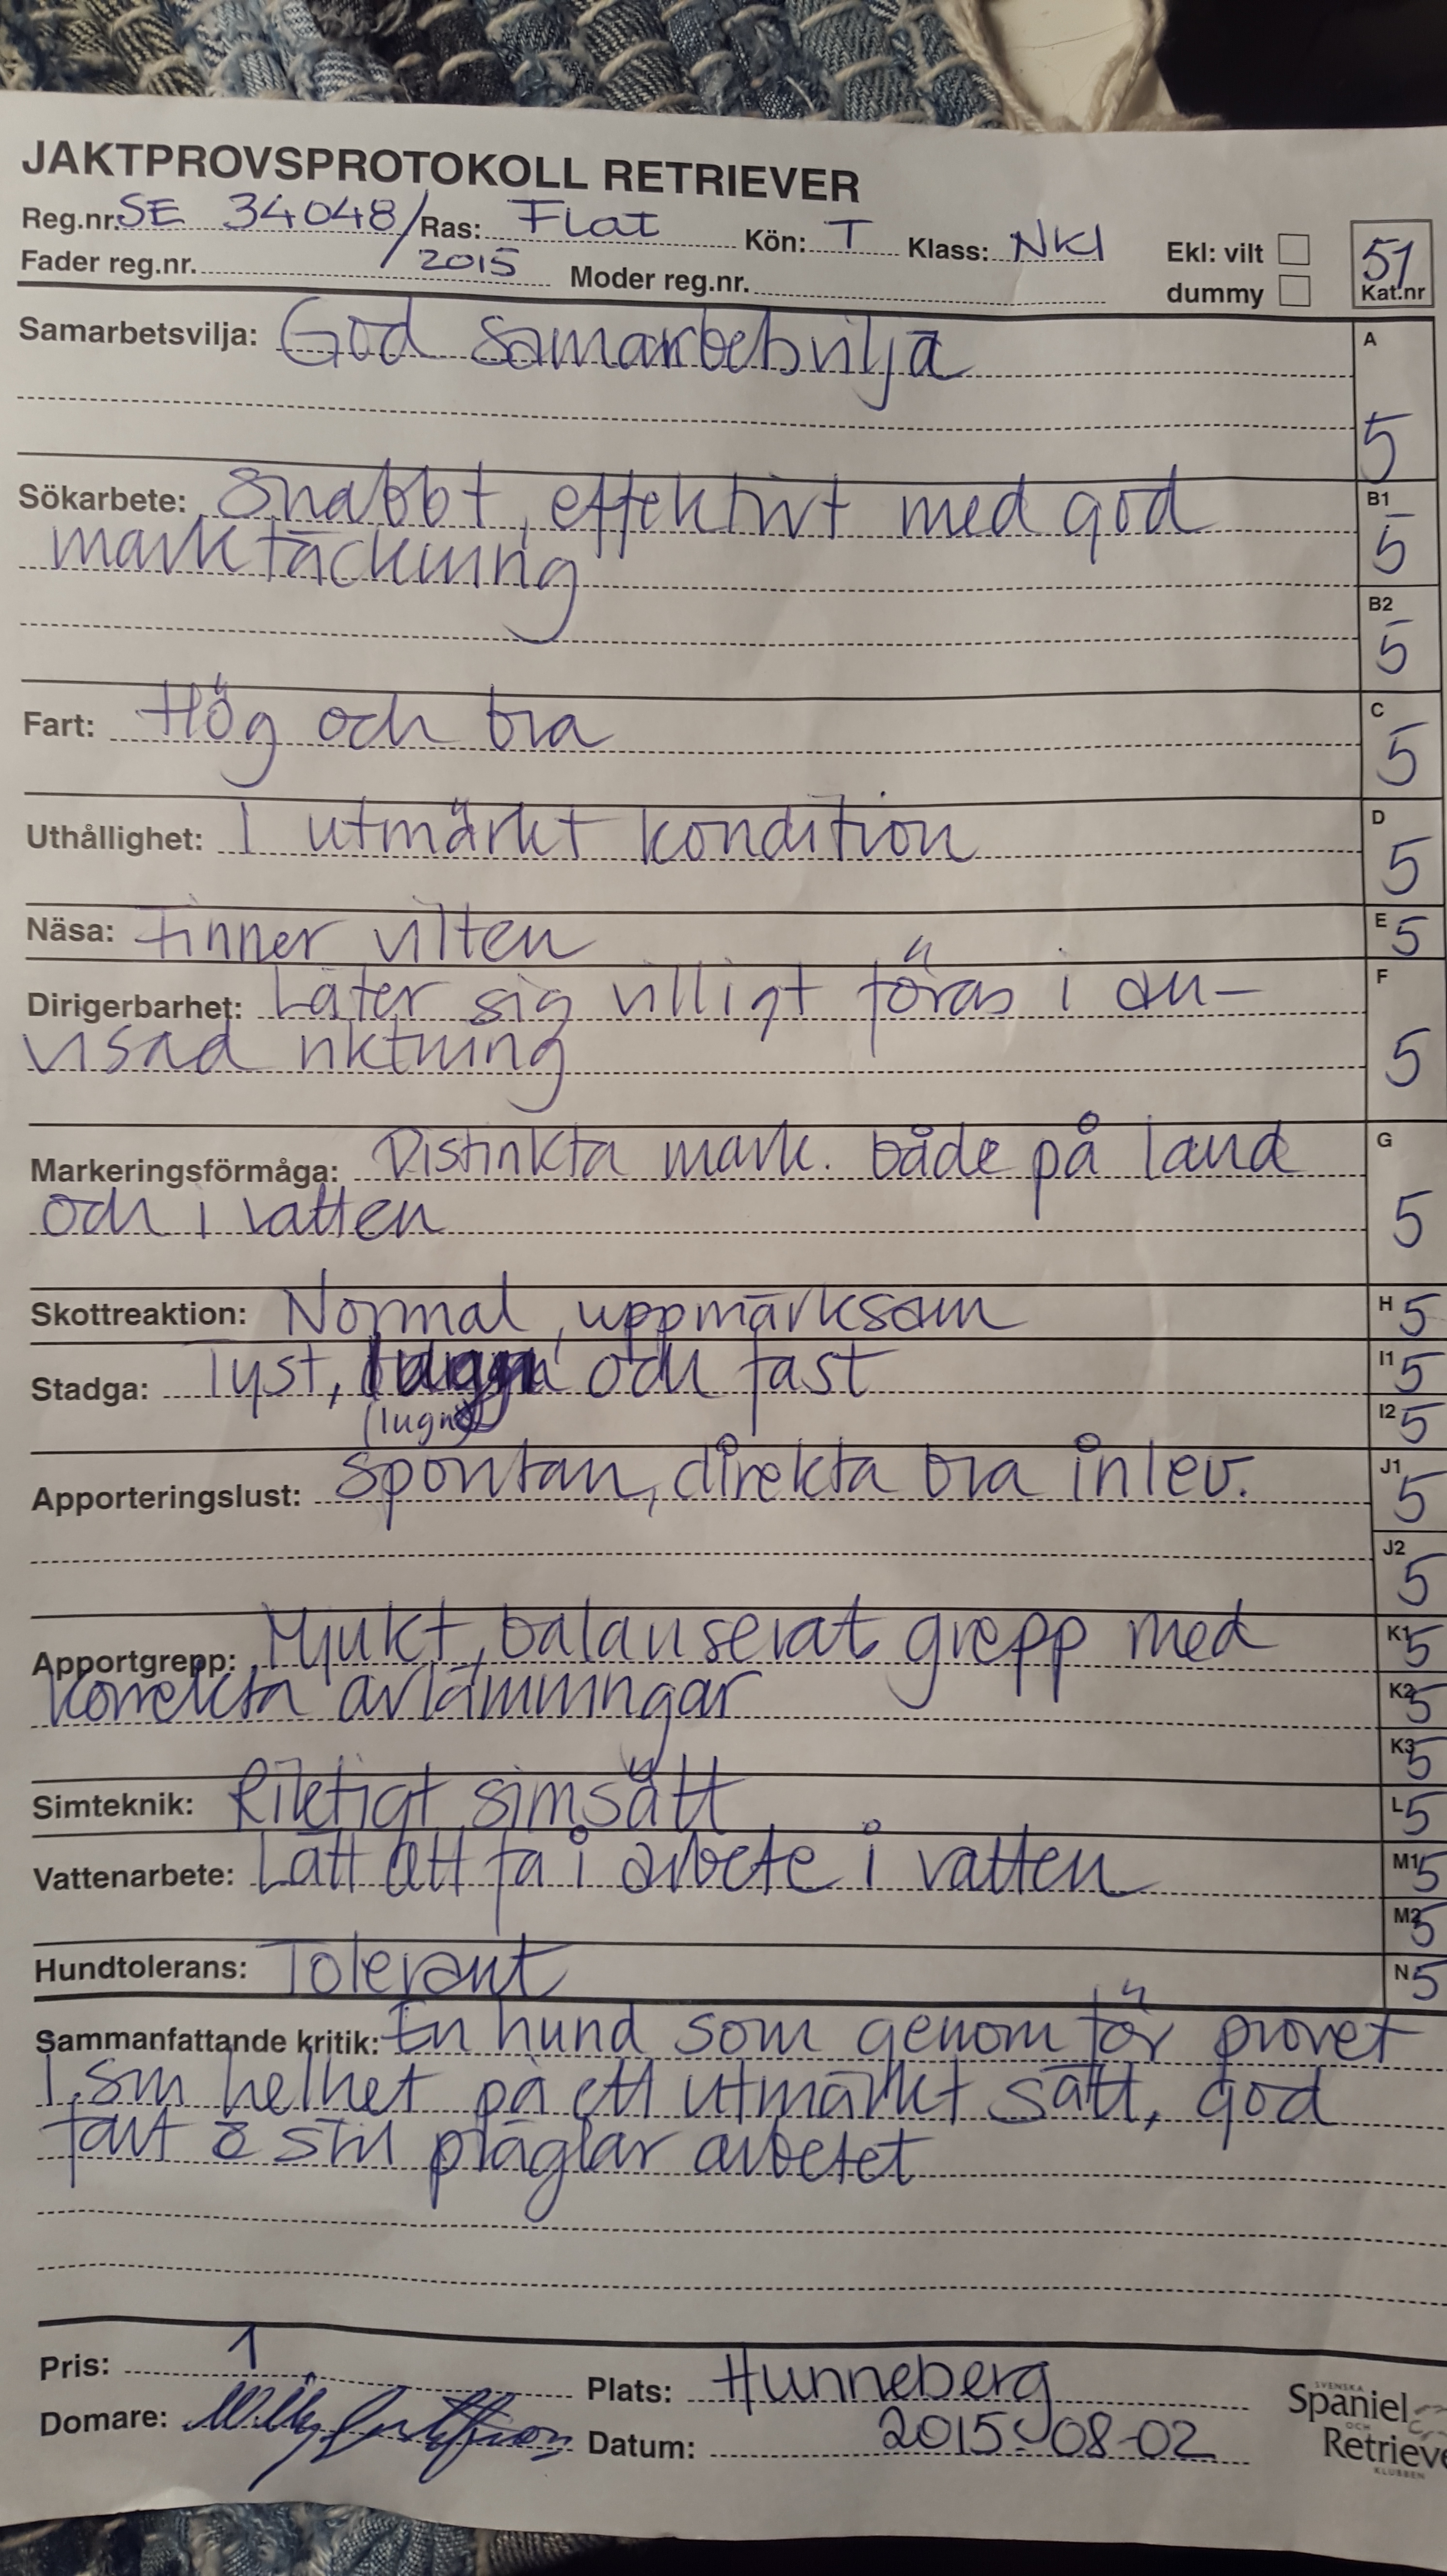 JAKTPROVSPROTOKOLL RETRIEVER
Reg.nr. SE 34048/ Ras: Flat Kön: T Klass: NKl Ekl: vilt 51
Fader reg.nr. 2015 Moder reg.nr. dummy Kat.nr
Samarbetsvilja: God samarbetsvilja A
5
Sökarbete: Snabbt, effektivt med god B1
marktäckning 5
B2
5
Fart: Hög och bra C 5
Uthållighet: I utmärkt kondition D 5
Näsa: Finner vilten E 5
Dirigerbarhet: Låter sig villigt föras i an- F
visad riktning 5
Markeringsförmåga: Distinkta mark. både på land G
och i vatten 5
Skottreaktion: Normal, uppmärksam H 5
Stadga: Tyst, och fast I1 5
(lugn) I2 5
Apporteringslust: Spontan, direkta bra inlev. J1 5
J2 5
Apportgrepp: Mjukt, balanserat grepp med K1 5
korrekta avlämningar K2 5
K3 5
Simteknik: Riktigt simsätt L 5
Vattenarbete: Lätt att få i arbete i vatten M1 5
M2 5
Hundtolerans: Tolerant N 5
Sammanfattande kritik: En hund som genomför provet
i sin helhet på ett utmärkt sätt, god
fart & stil präglar arbetet
Pris: 1 Plats: Hunneberg
Domare: Datum: 2015-08-02
SVENSKA
Spaniel
OCH
Retrieve
KLUBBEN